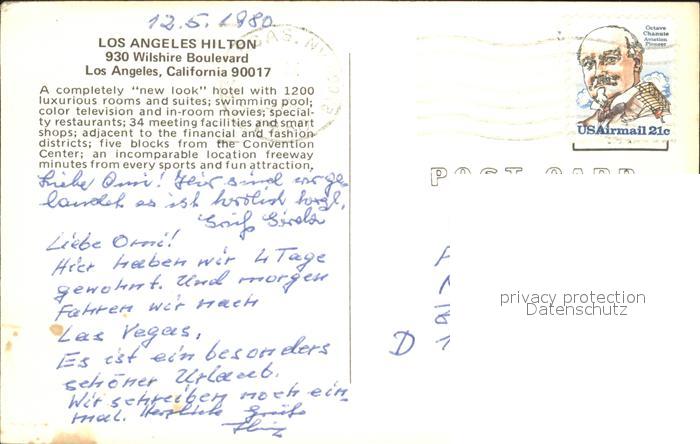 12.5.1980
LOS ANGELES HILTON
930 Wilshire Boulevard
Los Angeles, California 90017
A completely "new look" hotel with 1200
luxurious rooms and suites; swimming pool;
color television and in-room movies; special-
ty restaurants; 34 meeting facilities and smart
shops; adjacent to the financial and fashion
districts; five blocks from the Convention
Center; an incomparable location freeway
minutes from every sports and fun attraction.
Liebe Omi! Hier sind wir ge-
landet es ist herrlich
Gruß
Liebe Omi!
Hier haben wir 4 Tage
gewohnt. Und morgen
fahren wir nach
Las Vegas.
Es ist ein besonders
schöner Urlaub.
Wir schreiben noch ein-
mal. Herzliche Grüße
Octave
Chanute
Aviation
Pioneer
USAirmail 21c
POST CARD
D 1
privacy protection
Datenschutz